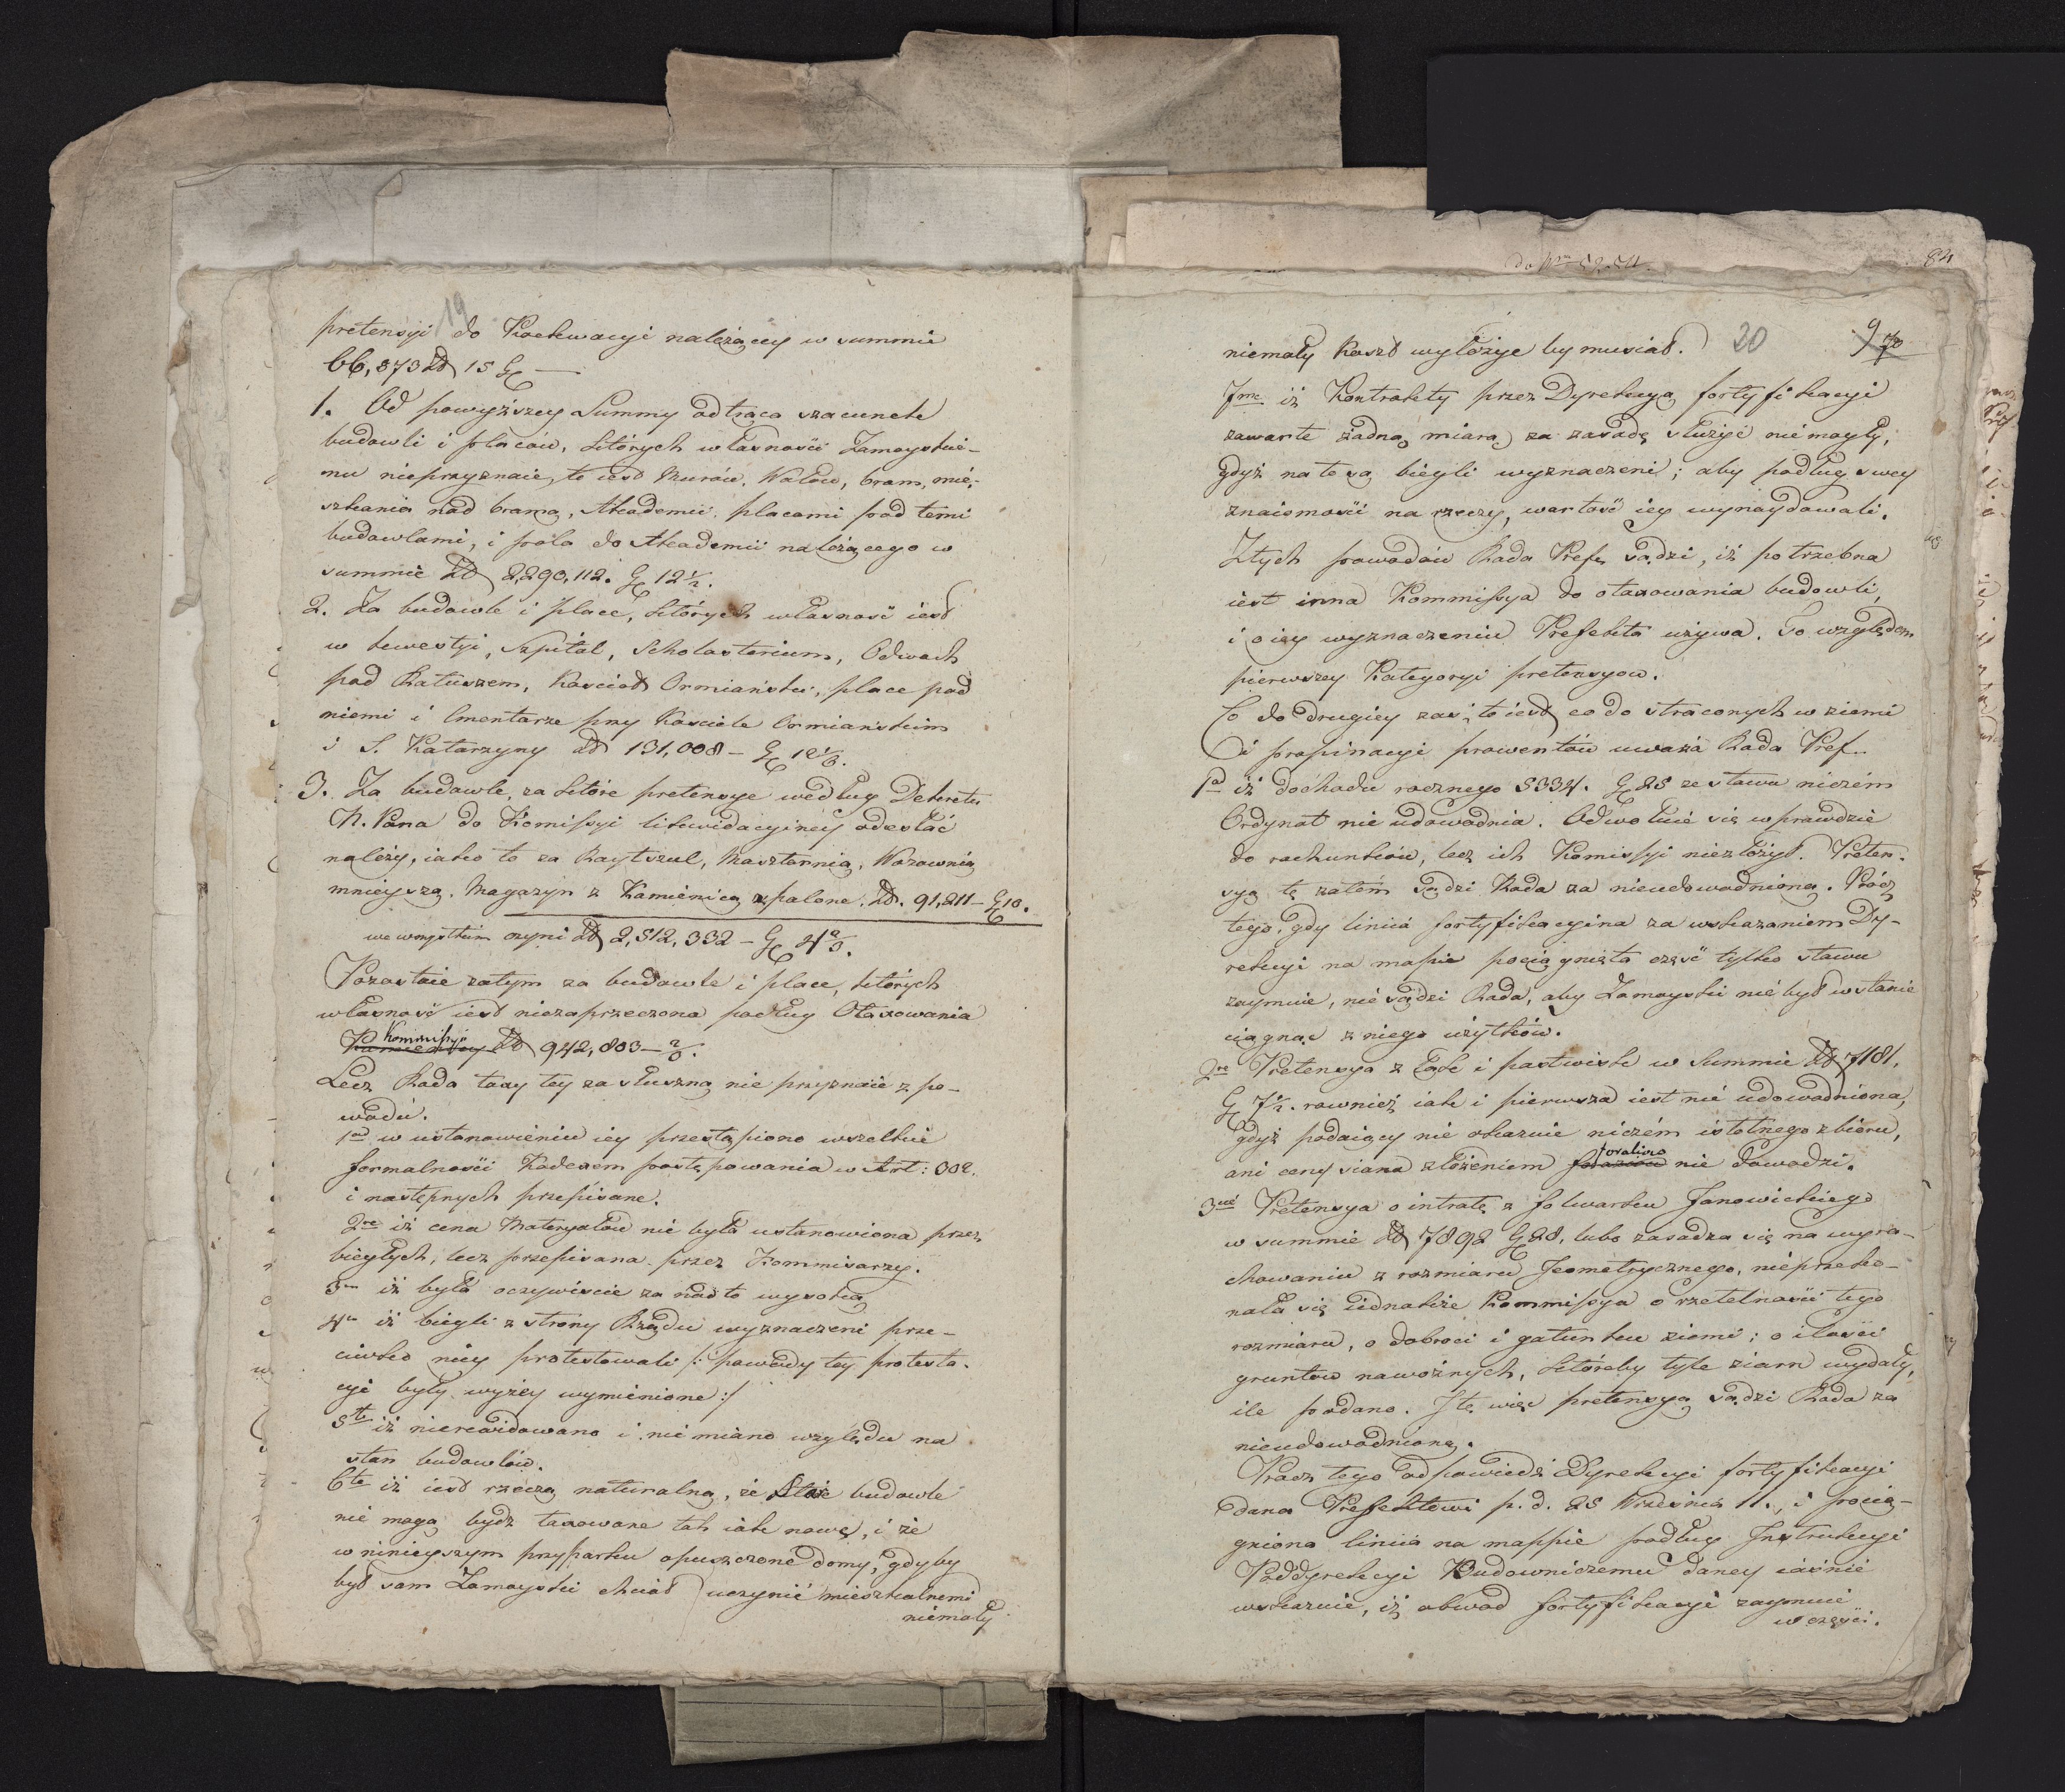 19
pretensyi do Koekwacyi należącey w summie
66,873 Zł 15 Gr —
1. Od powyższey Summy odtrąca szacunek
budowli i placów, których własności Zamoyskie-
mu nieprzyznaie, to iest Murów, Wałów, bram, mie-
szkania nad bramą, Akademii, placami pod temi
budowlami, i pola do Akademii należącego w
summie Zł 2,290,112. Gr 12½.
2. Za budowle i place, których własność iest
w kwestyi, Szpital, Scholasterium, Odwach
pod Ratuszem, Kościoł Ormiański, place pod
niemi i Cmentarze przy Kościele Ormiańskim
i S. Katarzyny Zł 131,008 – Gr 12⅙.
3. Za budowle, za które pretensye według Dekretu
N. Pana do Komissyi likwidacyiney odesłać
należy, iako to za Raytszul, Masztarnią, Wozownią
mnieyszą, Magazyn z Kamienicą spalone. Zł. 91,211 – Gr 10.
we wszystkim czyni Zł 2,512,332 – Gr 4⅔.
Pozostaie zatym za budowle i place, których
własność iest niezaprzeczona podług Otaxowania
Kommissyi
Zł 942,803 – ⅔.
Lecz Rada taxy tey za słuszną nie przyznaie z po-
wodu.
1od w ustanowieniu iey przestąpiono wszelkie
formalności Kodexem postępowania w Art: 302.
i następnych przepisane.
2re iż cena Materyałów nie była ustanowiona przez
biegłych, lecz przepisana przez Kommisarzy.
3m iż była oczywiście za nadto wysoką
4to iż biegli z strony Rządu wyznaczeni prze-
ciwko niey protestowali /: powody tey protesta-
cyi były wyżey wymienione :/
5te iż nierewidowano i nie miano względu na
stan budowlów.
6te iż iest rzeczą naturalną, że Stare budowle
nie mogą bydz taxowane tak iak nowe, i że
w ninieyszym przypadku opuszczone domy, gdyby
był sam Zamoyski chciał uczynić mieszkalnemi
niemały
do Nrm 52.54.
84
20
9
niemały Koszt wyłożyć by musiał.
7me iż Kontrakty przez Dyrekcyą fortyfikacyi
zawarte żadną miarą za zasadę służyć nie mogły,
gdyż na to są biegli wyznaczeni; aby podług swey
znaiomości na rzeczy, wartość iey wynaydowali.
Z tych powodów Rada Pref. sądzi, iż potrzebna
iest inna Kommissya do otaxowania budowli,
i o iey wyznaczeniu Prefekta używa. To względem
pierwszey Kategoryi pretensyow.
Co do drugiey zaś, to iest co do straconych w ziemi
i propinacyi prowentów uważa Rada Pref.
1od iż dochodu rocznego 5334. Gr 25 ze stawu niczem
Ordynat nie udowodnia. Odwołuie się wprawdzie
do rachunków, lecz ich Komissyi niezłożył. Preten-
syą tę zatem sądzi Rada za nieudowodnioną. Prócz
tego, gdy linia fortyfikacyina za wskazaniem Dy-
rekcyi na mapie pociągnięta część tylko stawu
zaymuie, nie sądzi Rada, aby Zamoyski nie był w stanie
ciągnąc z niego użytków.
2re Pretensya z Łąk i pastwisk w Summie Zł 7181.
Gr 7½. rownież iak i pierwsza iest nie udowodniona,
gdyż podaiący nie okazuie niczém istotnego zbioru,
ani ceny siana złożeniem nie dowodzi.
3cie Pretensya o intratę z folwarku Janowickiego
w summie Zł 7892 Gr 28. lubo zasadza się na wyra-
chowaniu z rozmiaru Jeometrycznego, nieprzeko-
nała się iednakże Kommissya o rzetelności tego
rozmiaru, o dobroci i gatunku ziemi; o ilości
gruntow nawoźnych, któreby tyle ziarn wydały,
ile podano. I tę więc pretensyą sądzi Rada za
nieudowodnioną.
Prócz tego odpowiedź Dyrekcyi fortyfikacyi
dana Prefektowi p. d. 25 Września 11. i pocią-
gniona linia na mappie podług Instrukcyi
Poddyrekcyi Budowniczemu daney iaśnie
wskazuie, iż obwod fortyfikacyi zaymuie
w części.